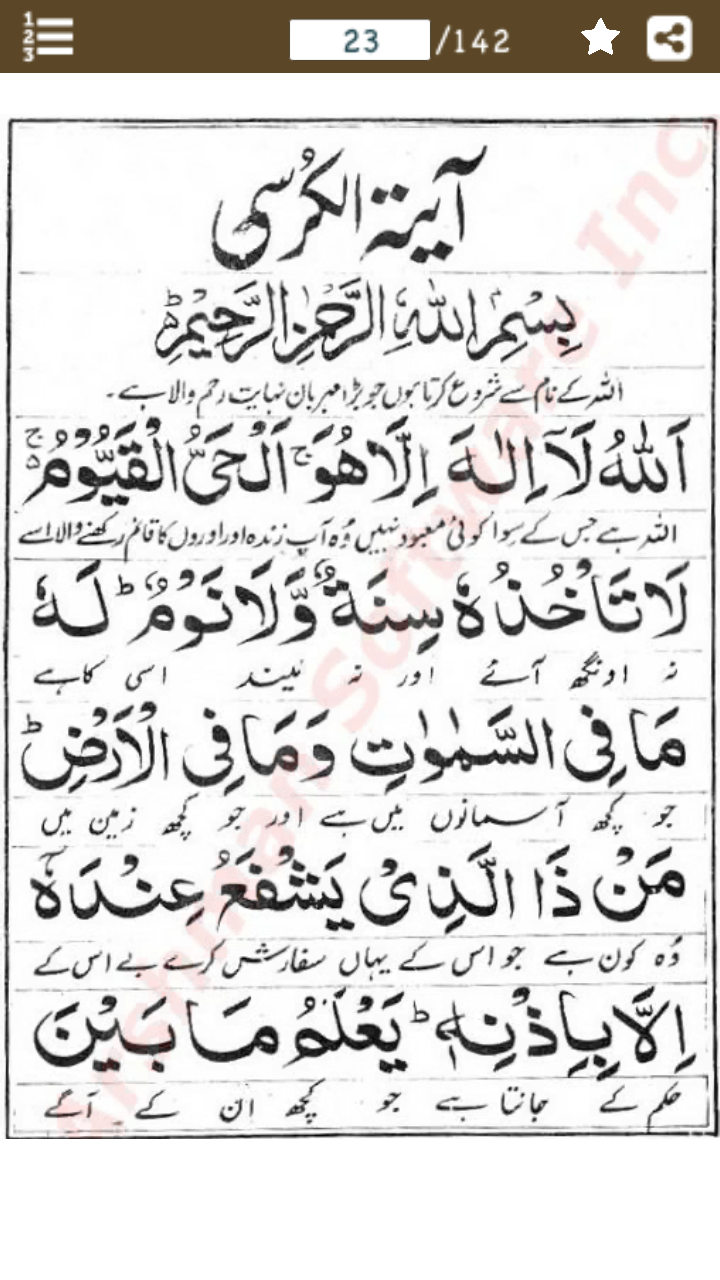 1
2
3
23 /142
آیۃ الکرسی
بِسْمِ اللّٰهِ الرَّحْمٰنِ الرَّحِیْمِ ؕ
اللہ کے نام سے شروع کرتا ہوں جو بڑا مہربان نہایت رحم والا ہے۔
اَللّٰهُ لَاۤ اِلٰهَ اِلَّا هُوَ ۚ اَلْحَیُّ الْقَیُّوْمُ ۚ۬
اللہ ہے جس کے سوا کوئی معبود نہیں وُہ آپ زندہ اور اوروں کا قائم رکھنے والا اسے
لَا تَاْخُذُهٗ سِنَةٌ وَّلَا نَوْمٌ ؕ لَهٗ
نہ اونگھ آئے اور نہ نیند اسی کا ہے
مَا فِی السَّمٰوٰتِ وَمَا فِی الْاَرْضِ ؕ
جو کچھ آسمانوں میں ہے اور جو کچھ زمین میں
مَنْ ذَا الَّذِیْ یَشْفَعُ عِنْدَهٗۤ
وُہ کون ہے جو اس کے یہاں سفارش کرے بے اس کے
اِلَّا بِاِذْنِهٖ ؕ یَعْلَمُ مَا بَیْنَ
حکم کے جانتا ہے جو کچھ ان کے آگے
Arshman Software Inc.